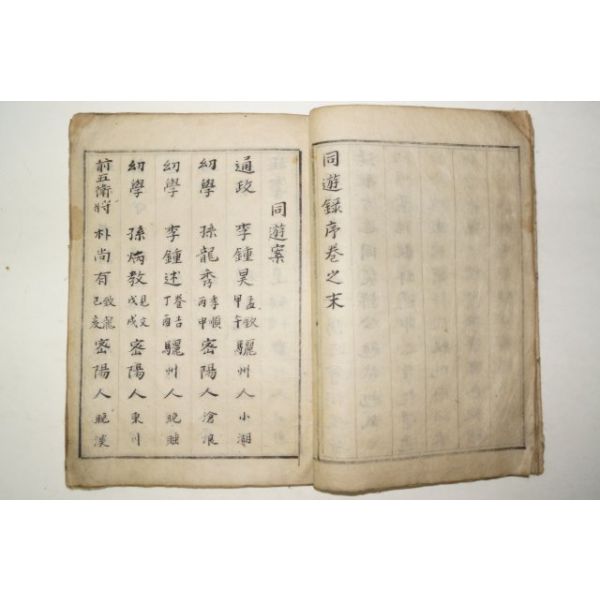 同遊録序卷之末
同遊案
通政 李鍾昊 孟欽 甲午 驪州人 小湖
幼學 孫龍秀 孝順 丙申 密陽人 滄浪
幼學 李鍾述 丁酉 驪州人 晩
幼學 孫炳教 見文 戊戌 密陽人 東川
前五衛將 朴尚有 致龍 己亥 密陽人 晩淡